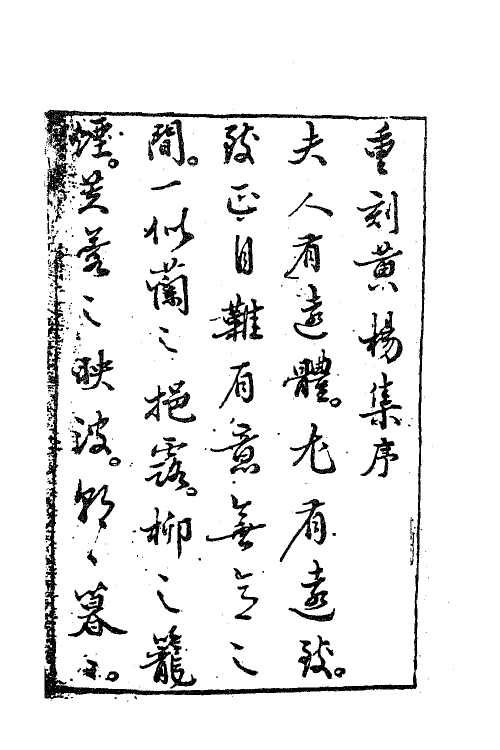 重刻黃楊集序
夫人有遠體。尤有遠致。
致正自難。有意無意之
間。一似蘭之挹露。柳之籠
煙。芙蓉之映波。朝〻暮〻。